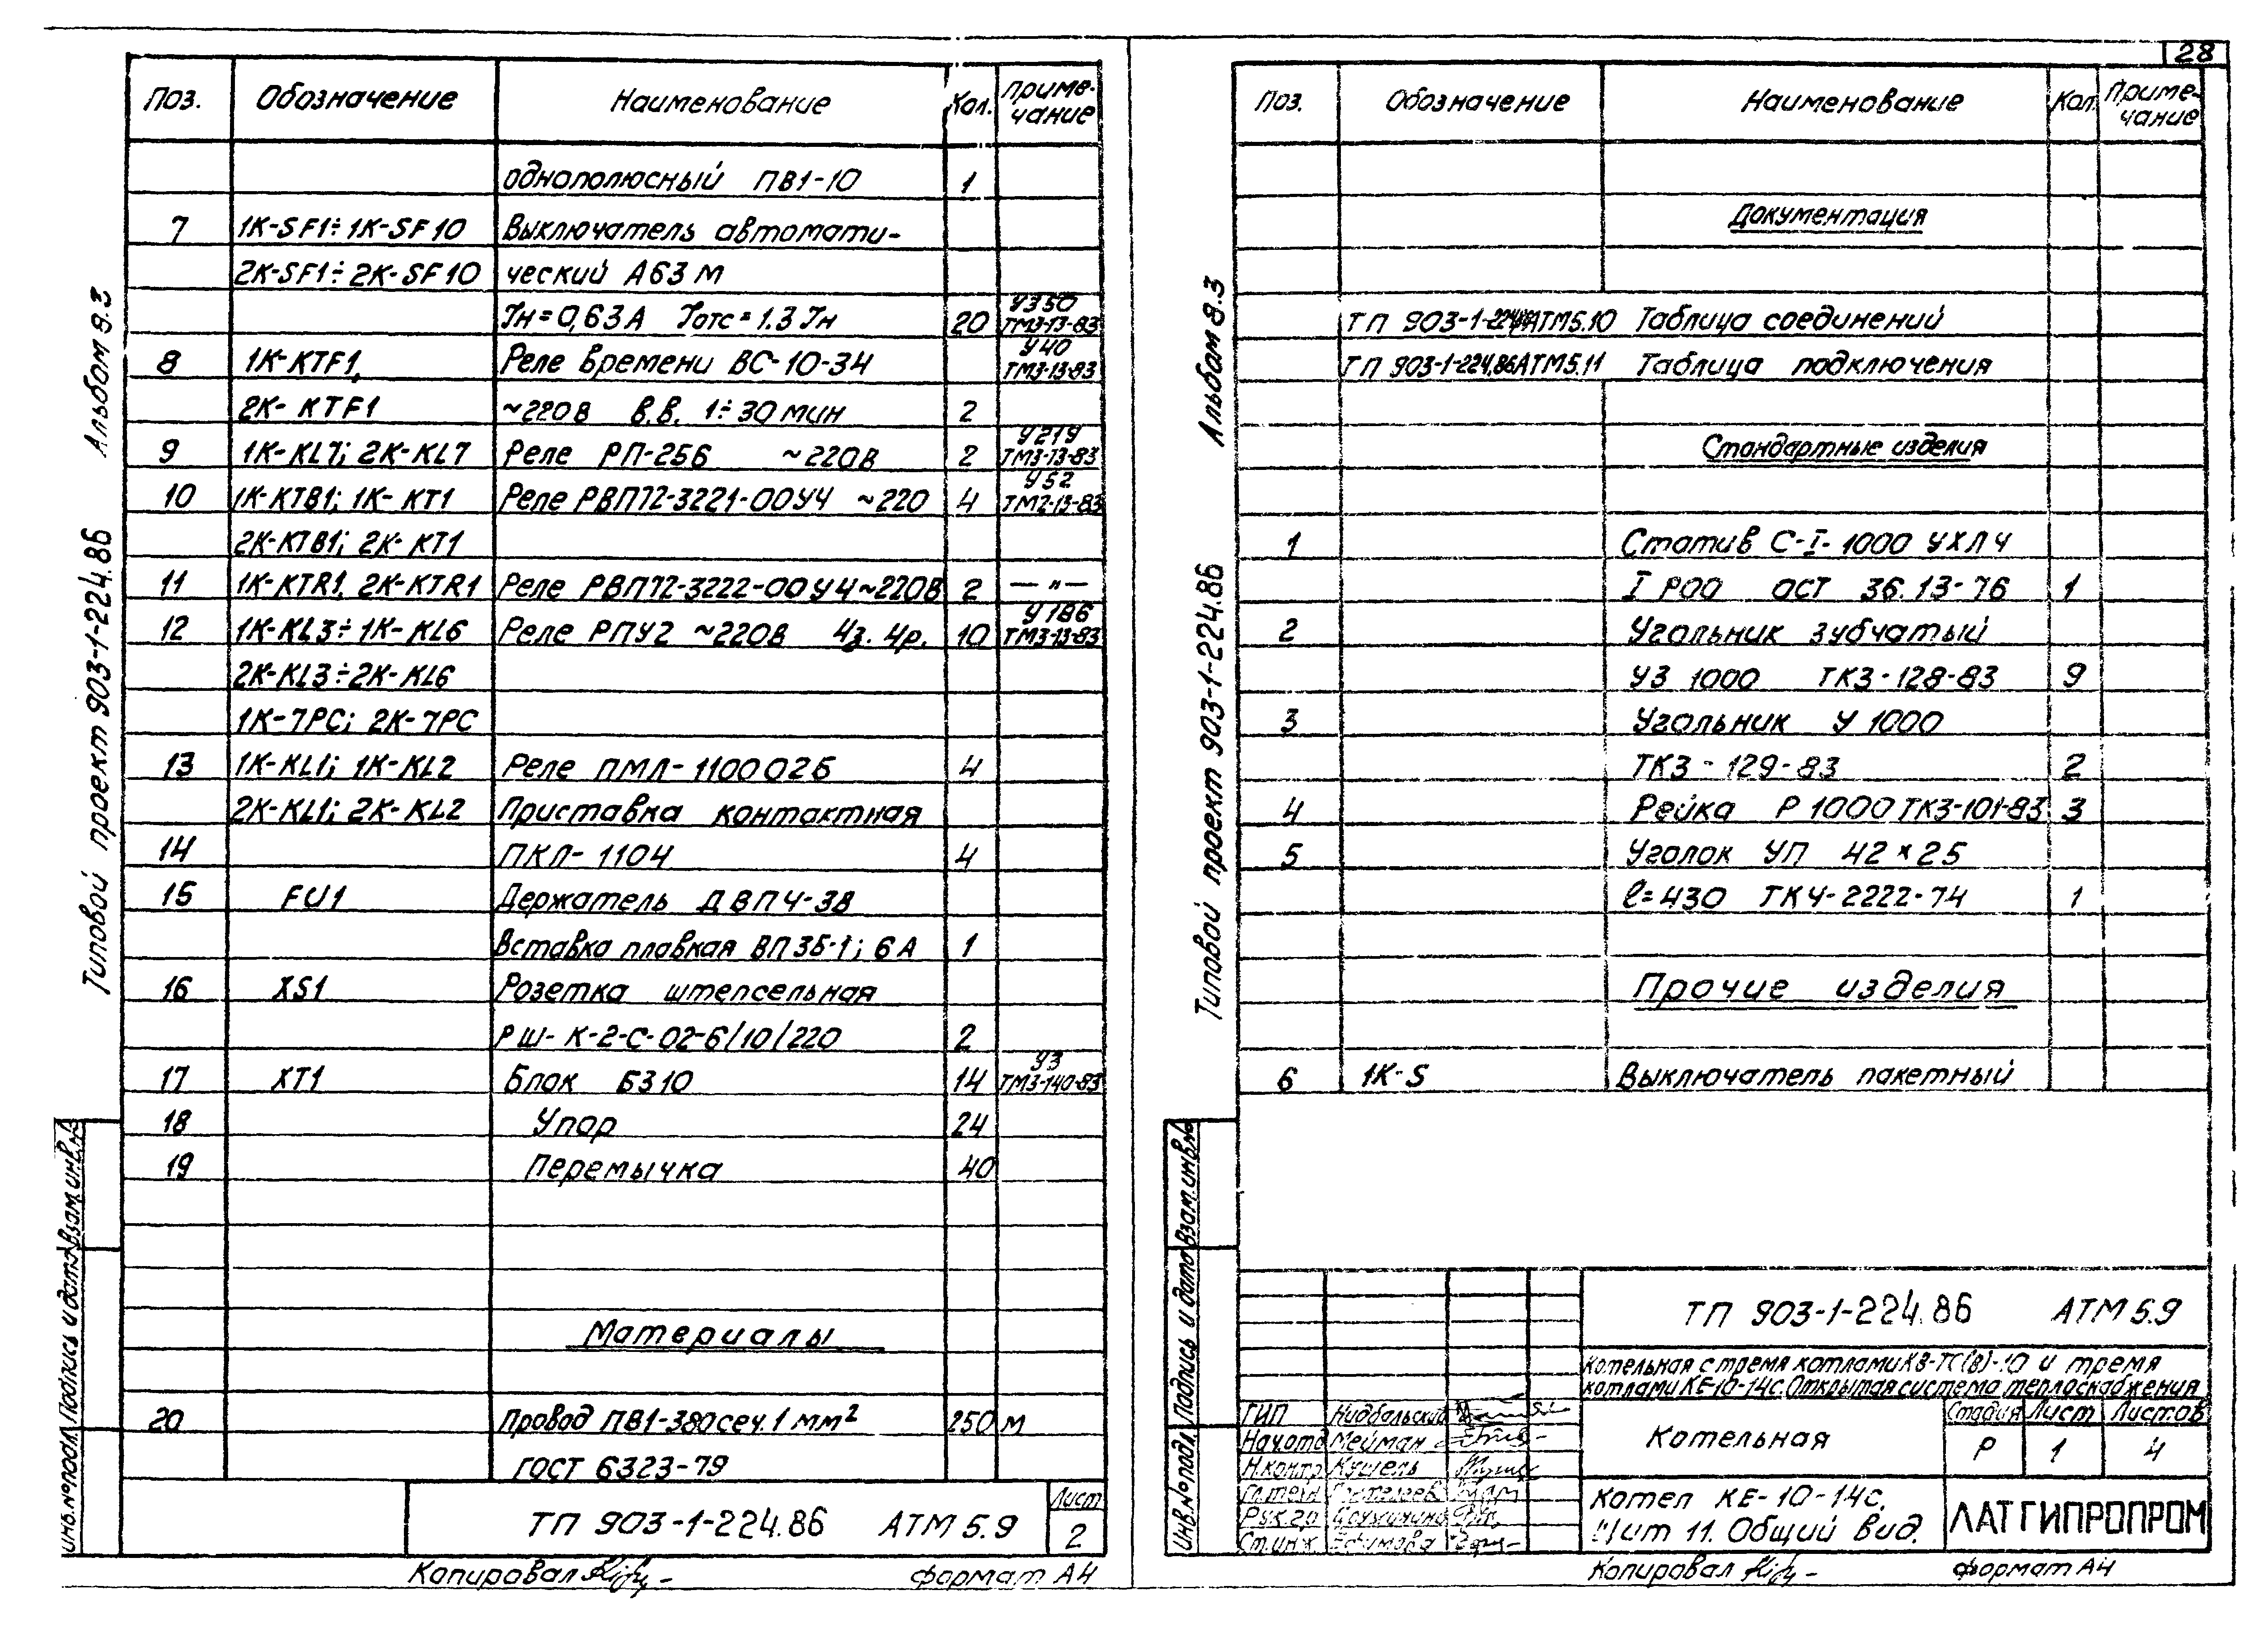 28
Поз. Обозначение Наименование Кол. Приме-
чание
однополюсный ПВ1-10 1
7 1К-SF1÷1К-SF10 Выключатель автомати-
2К-SF1÷2К-SF10 ческий А63М
Iн=0,63А Iотс=1.3Iн 20 У350
ТМ3-13-83
8 1К-КТF1, Реле времени ВС-10-34 У40
ТМ3-13-83
2К-КТF1 ~220в в.в. 1÷30мин 2
9 1К-KL7; 2К-KL7 Реле РП-256 ~220в 2 У219
ТМ3-13-83
10 1К-КТВ1; 1К-КТ1 Реле РВП72-3221-00У4 ~220 4 У52
ТМ2-13-83
2К-КТВ1; 2К-КТ1
11 1К-КТR1, 2К-КТR1 Реле РВП72-3222-00У4~220в 2 —"—
12 1К-KL3÷1К-KL6 Реле РПУ2 ~220в 4з. 4р. 10 У186
ТМ3-13-83
2К-KL3÷2К-KL6
1К-7РС; 2К-7РС
13 1К-KL1; 1К-KL2 Реле ПМЛ-110002Б 4
2К-KL1; 2К-KL2 Приставка контактная
14 ПКЛ-1104 4
15 FU1 Держатель ДВП4-38
Вставка плавкая ВП3Б-1; 6А 1
16 XS1 Розетка штепсельная
РШ-К-2-С-02-6/10/220 2
17 ХТ1 Блок Б310 14 У3
ТМ3-140-83
18 Упор 24
19 Перемычка 40
Материалы
20 Провод ПВ1-380 сеч. 1 мм² 250 м
ГОСТ 6323-79
ТП 903-1-224.86 АТМ5.9 Лист
2
Копировал формат А4
Альбом 9.3
Типовой проект 903-1-224.86
Инв.№подл. Подпись и дата Взам.инв.№
Поз. Обозначение Наименование Кол. Приме-
чание
Документация
ТП 903-1-224.86АТМ5.10 Таблица соединений
ТП 903-1-224.86АТМ5.11 Таблица подключения
Стандартные изделия
1 Статив С-I-1000 УХЛ4
I Р00 ОСТ 36.13-76 1
2 Угольник зубчатый
УЗ 1000 ТК3-128-83 9
3 Угольник У 1000
ТК3-129-83 2
4 Рейка Р1000 ТК3-101-83 3
5 Уголок УП 42×25
ℓ=430 ТК4-2222-74 1
Прочие изделия
6 1К-S Выключатель пакетный
Альбом 8.3
Типовой проект 903-1-224.86
Инв.№подл. Подпись и дата Взам.инв.№
ТП 903-1-224.86 АТМ5.9
Котельная с тремя котлами КВ-ТС(В)-10 и тремя
котлами КЕ-10-14с. Открытая система теплоснабжения
ГИП Нидбальский
Нач.отд Мейман
Н.контр Кушель
Гл.техн
Рук.гр
Ст.инж. Ефимова
Котельная
Стадия Лист Листов
Р 1 4
Котел КЕ-10-14с.
Щит 11. Общий вид.
ЛАТГИПРОПРОМ
Копировал формат А4